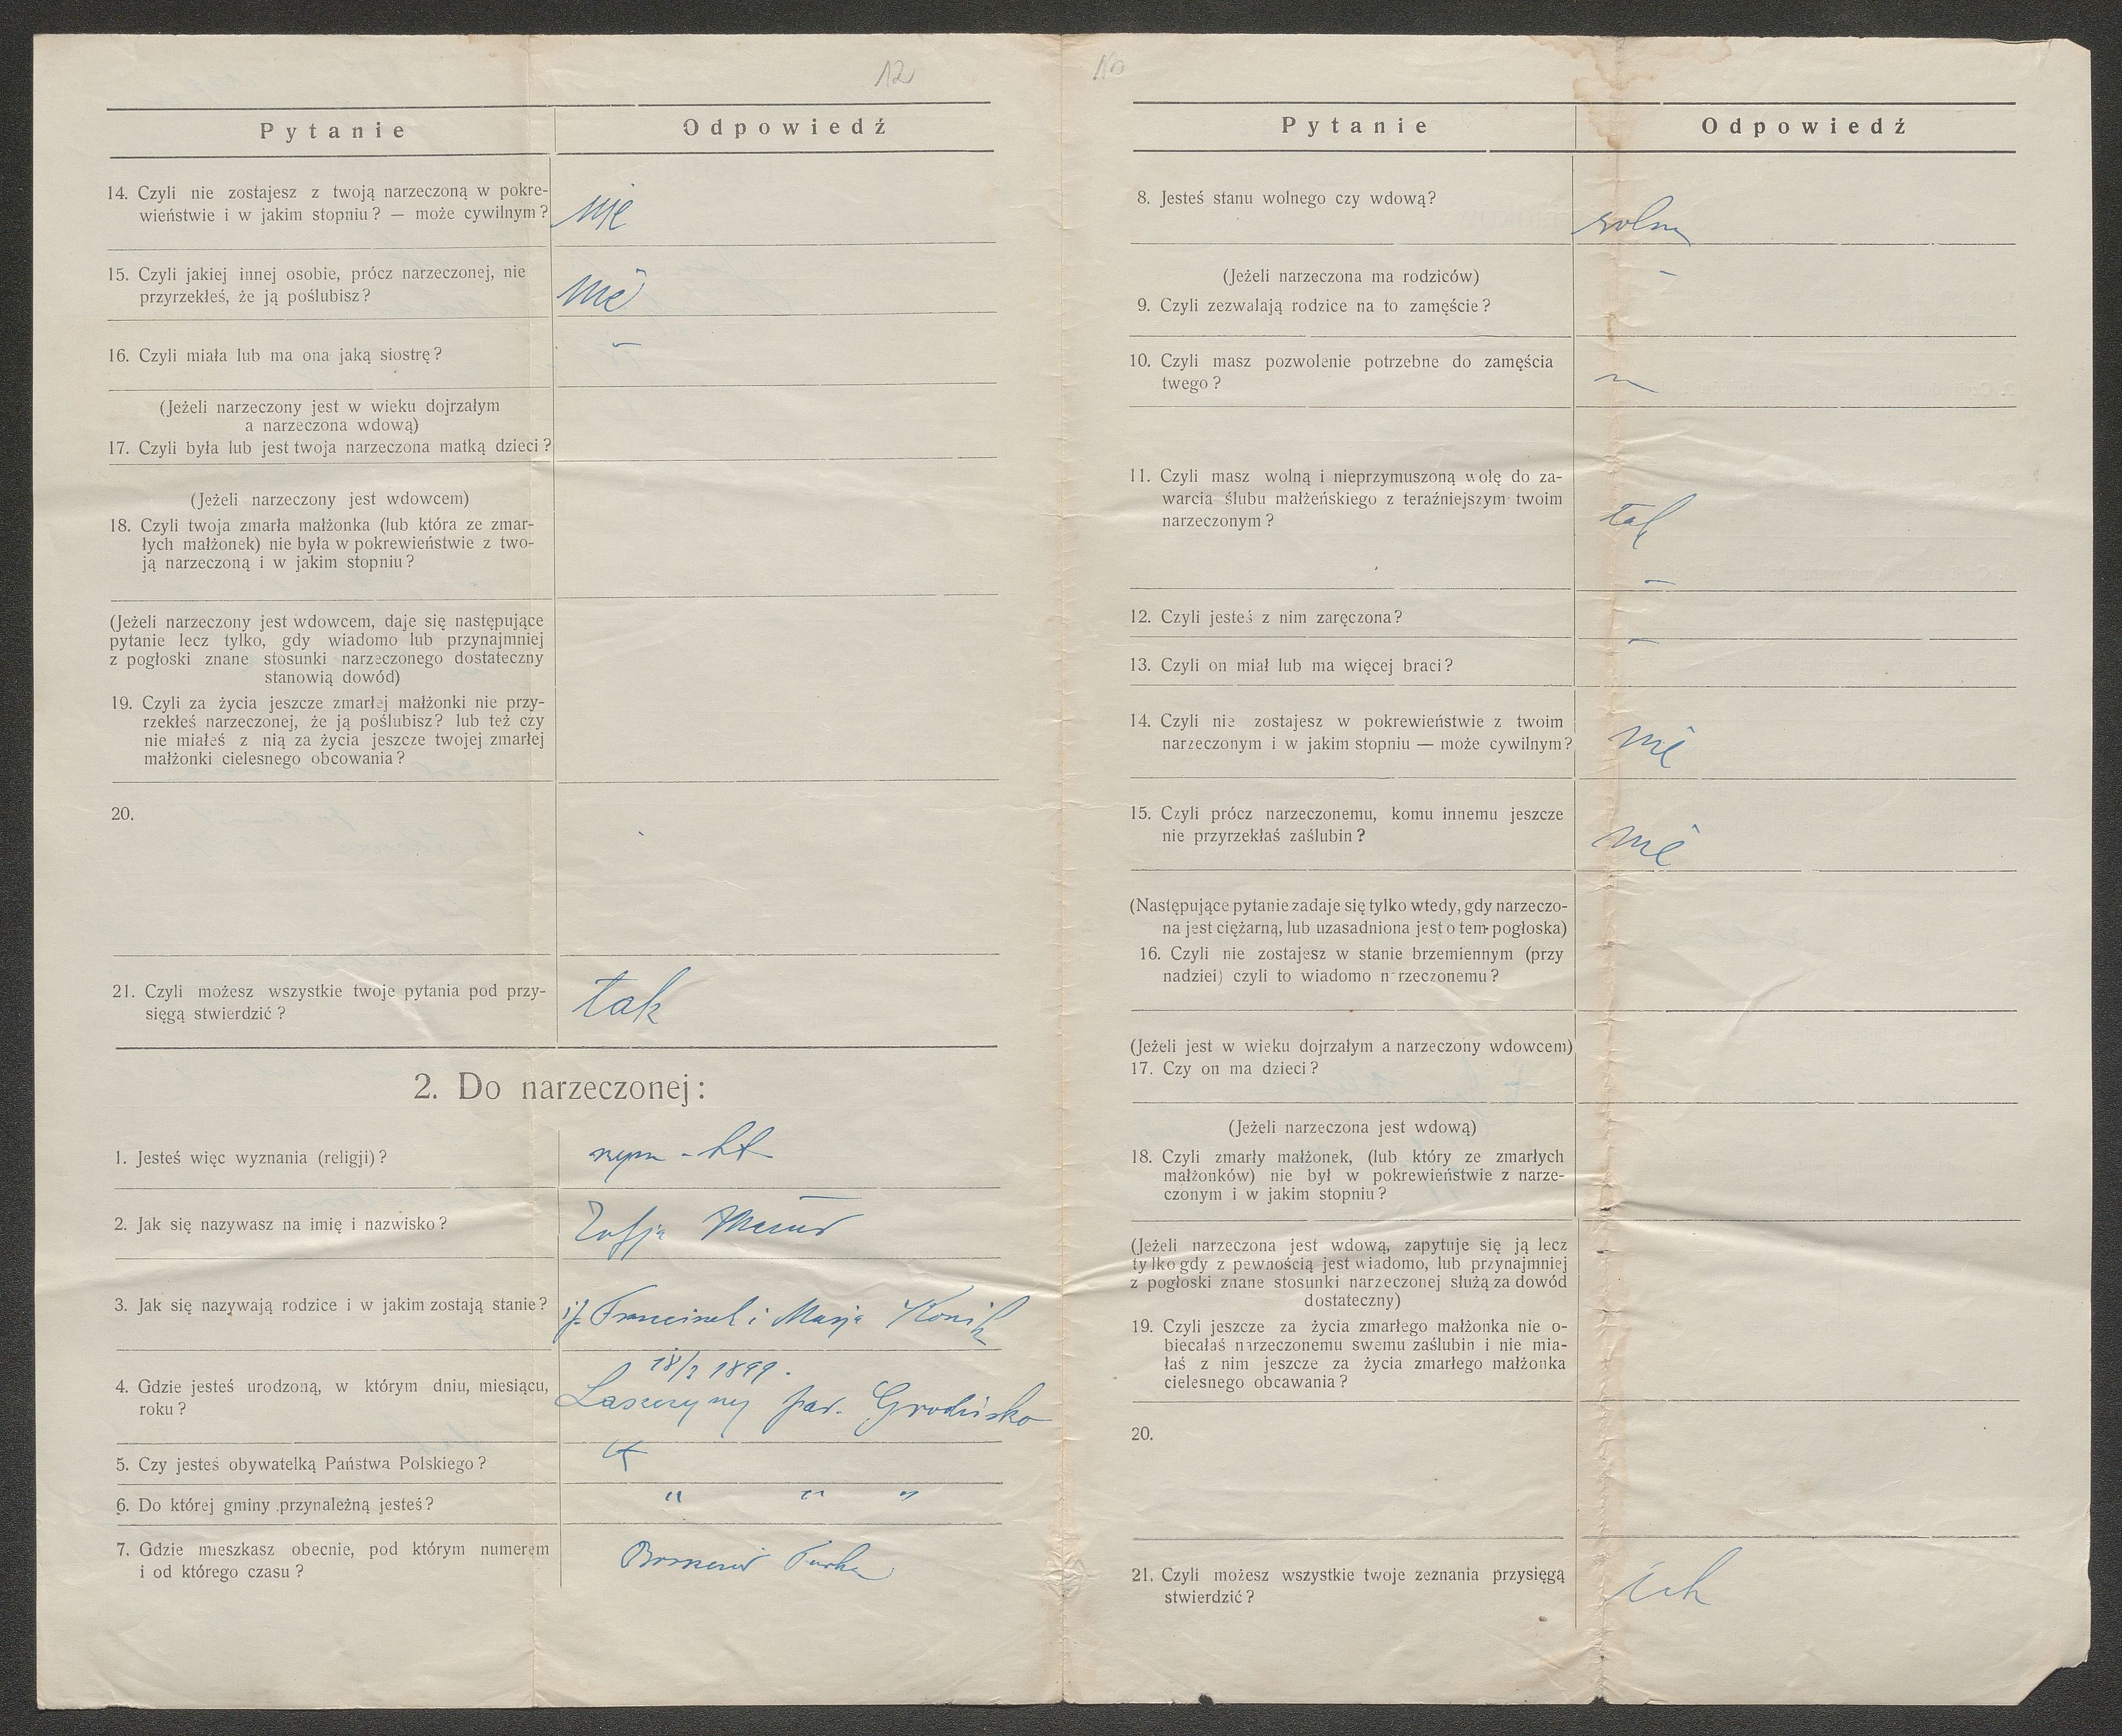 12
Pytanie
Odpowiedź
14. Czyli nie zostajesz z twoją narzeczoną w pokre-
wieństwie i w jakim stopniu? — może cywilnym?
nie
15. Czyli jakiej innej osobie, prócz narzeczonej, nie
przyrzekłeś, że ją poślubisz?
nie
16. Czyli miała lub ma ona jaką siostrę?
–
(Jeżeli narzeczony jest w wieku dojrzałym
a narzeczona wdową)
17. Czyli była lub jest twoja narzeczona matką dzieci?
(Jeżeli narzeczony jest wdowcem)
18. Czyli twoja zmarła małżonka (lub która ze zmar-
łych małżonek) nie była w pokrewieństwie z two-
ją narzeczoną i w jakim stopniu?
(Jeżeli narzeczony jest wdowcem, daje się następujące
pytanie lecz tylko, gdy wiadomo lub przynajmniej
z pogłoski znane stosunki narzeczonego dostateczny
stanowią dowód)
19. Czyli za życia jeszcze zmarłej małżonki nie przy-
rzekłeś narzeczonej, że ją poślubisz? lub też czy
nie miałeś z nią za życia jeszcze twojej zmarłej
małżonki cielesnego obcowania?
20.
21. Czyli możesz wszystkie twoje pytania pod przy-
sięgą stwierdzić?
tak
2. Do narzeczonej:
1. Jesteś więc wyznania (religji)?
rzym - kt
2. Jak się nazywasz na imię i nazwisko?
Zofja
3. Jak się nazywają rodzice i w jakim zostają stanie?
Franciszek i Marja Konik
4. Gdzie jesteś urodzoną, w którym dniu, miesiącu,
roku?
1899.
Laszczyny par. Grodzisko
5. Czy jesteś obywatelką Państwa Polskiego?
6. Do której gminy przynależną jesteś?
" " "
7. Gdzie mieszkasz obecnie, pod którym numerem
i od którego czasu?
10
Pytanie
Odpowiedź
8. Jesteś stanu wolnego czy wdową?
wolna
(Jeżeli narzeczona ma rodziców)
9. Czyli zezwalają rodzice na to zamęście?
–
10. Czyli masz pozwolenie potrzebne do zamęścia
twego?
11. Czyli masz wolną i nieprzymuszoną wolę do za-
warcia ślubu małżeńskiego z teraźniejszym twoim
narzeczonym?
tak
12. Czyli jesteś z nim zaręczona?
–
13. Czyli on miał lub ma więcej braci?
–
14. Czyli nie zostajesz w pokrewieństwie z twoim
narzeczonym i w jakim stopniu — może cywilnym?
nie
15. Czyli prócz narzeczonemu, komu innemu jeszcze
nie przyrzekłaś zaślubin?
nie
(Następujące pytanie zadaje się tylko wtedy, gdy narzeczo-
na jest ciężarną, lub uzasadniona jest o tem pogłoska)
16. Czyli nie zostajesz w stanie brzemiennym (przy
nadziei) czyli to wiadomo n rzeczonemu?
(Jeżeli jest w wieku dojrzałym a narzeczony wdowcem)
17. Czy on ma dzieci?
(Jeżeli narzeczona jest wdową)
18. Czyli zmarły małżonek, (lub który ze zmarłych
małżonków) nie był w pokrewieństwie z narze-
czonym i w jakim stopniu?
(Jeżeli narzeczona jest wdową, zapytuje się ją lecz
tylko gdy z pewnością jest wiadomo, lub przynajmniej
z pogłoski znane stosunki narzeczonej służą za dowód
dostateczny)
19. Czyli jeszcze za życia zmarłego małżonka nie o-
biecałaś narzeczonemu swemu zaślubin i nie mia-
łaś z nim jeszcze za życia zmarłego małżonka
cielesnego obcawania?
20.
21. Czyli możesz wszystkie twoje zeznania przysięgą
stwierdzić?
tak